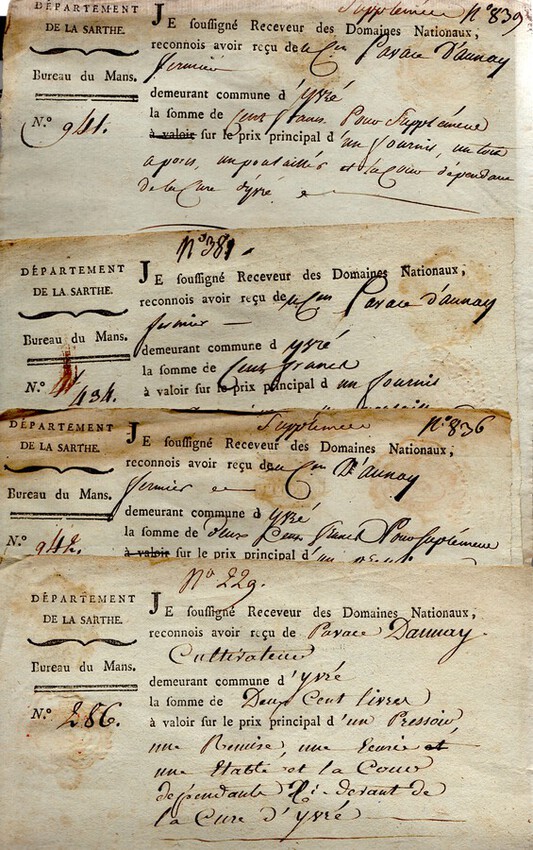 DÉPARTEMENT
DE LA SARTHE.
Bureau du Mans.
N.º 941.
Supplémen N.º 839
JE souſſigné Receveur des Domaines Nationaux,
reconnois avoir reçu de le Cen Pavace D'aunay
fermier
demeurant commune d'Yvré
la somme de Cent francs Pour Supplément
à valoir sur le prix principal d'un fournis, un toit
a porcs, un poulaillés et la Cour dépendant
de la Cure d'yvré
DÉPARTEMENT
DE LA SARTHE.
Bureau du Mans.
N.º 434.
N.º 381
JE ſouſſigné Receveur des Domaines Nationaux,
reconnois avoir reçu de le Cen Pavace d'aunay
fermier
demeurant commune d'yvré
la somme de Cent francs
à valoir ſur le prix principal d'un fournis
DÉPARTEMENT
DE LA SARTHE.
Bureau du Mans.
N.º 942.
Supplémen N.º 836
JE ſouſſigné Receveur des Domaines Nationaux,
reconnois avoir reçu de le Cen D'aunay
fermier
demeurant commune d'yvré
la somme de deux Cent francs Pour suplément
à valoir ſur le prix principal d'un
DÉPARTEMENT
DE LA SARTHE.
Bureau du Mans.
N.º 286.
No 229.
JE ſouſſigné Receveur des Domaines Nationaux,
reconnois avoir reçu de Pavace Daunay
Cultivateur
demeurant commune d'Yvré
la somme de Deux Cent livres
à valoir ſur le prix principal d'un Pressoir
une Remise, une Ecurie et
une Etable et la Cour
dépendante Ci-devant de
la Cure d'Yvré